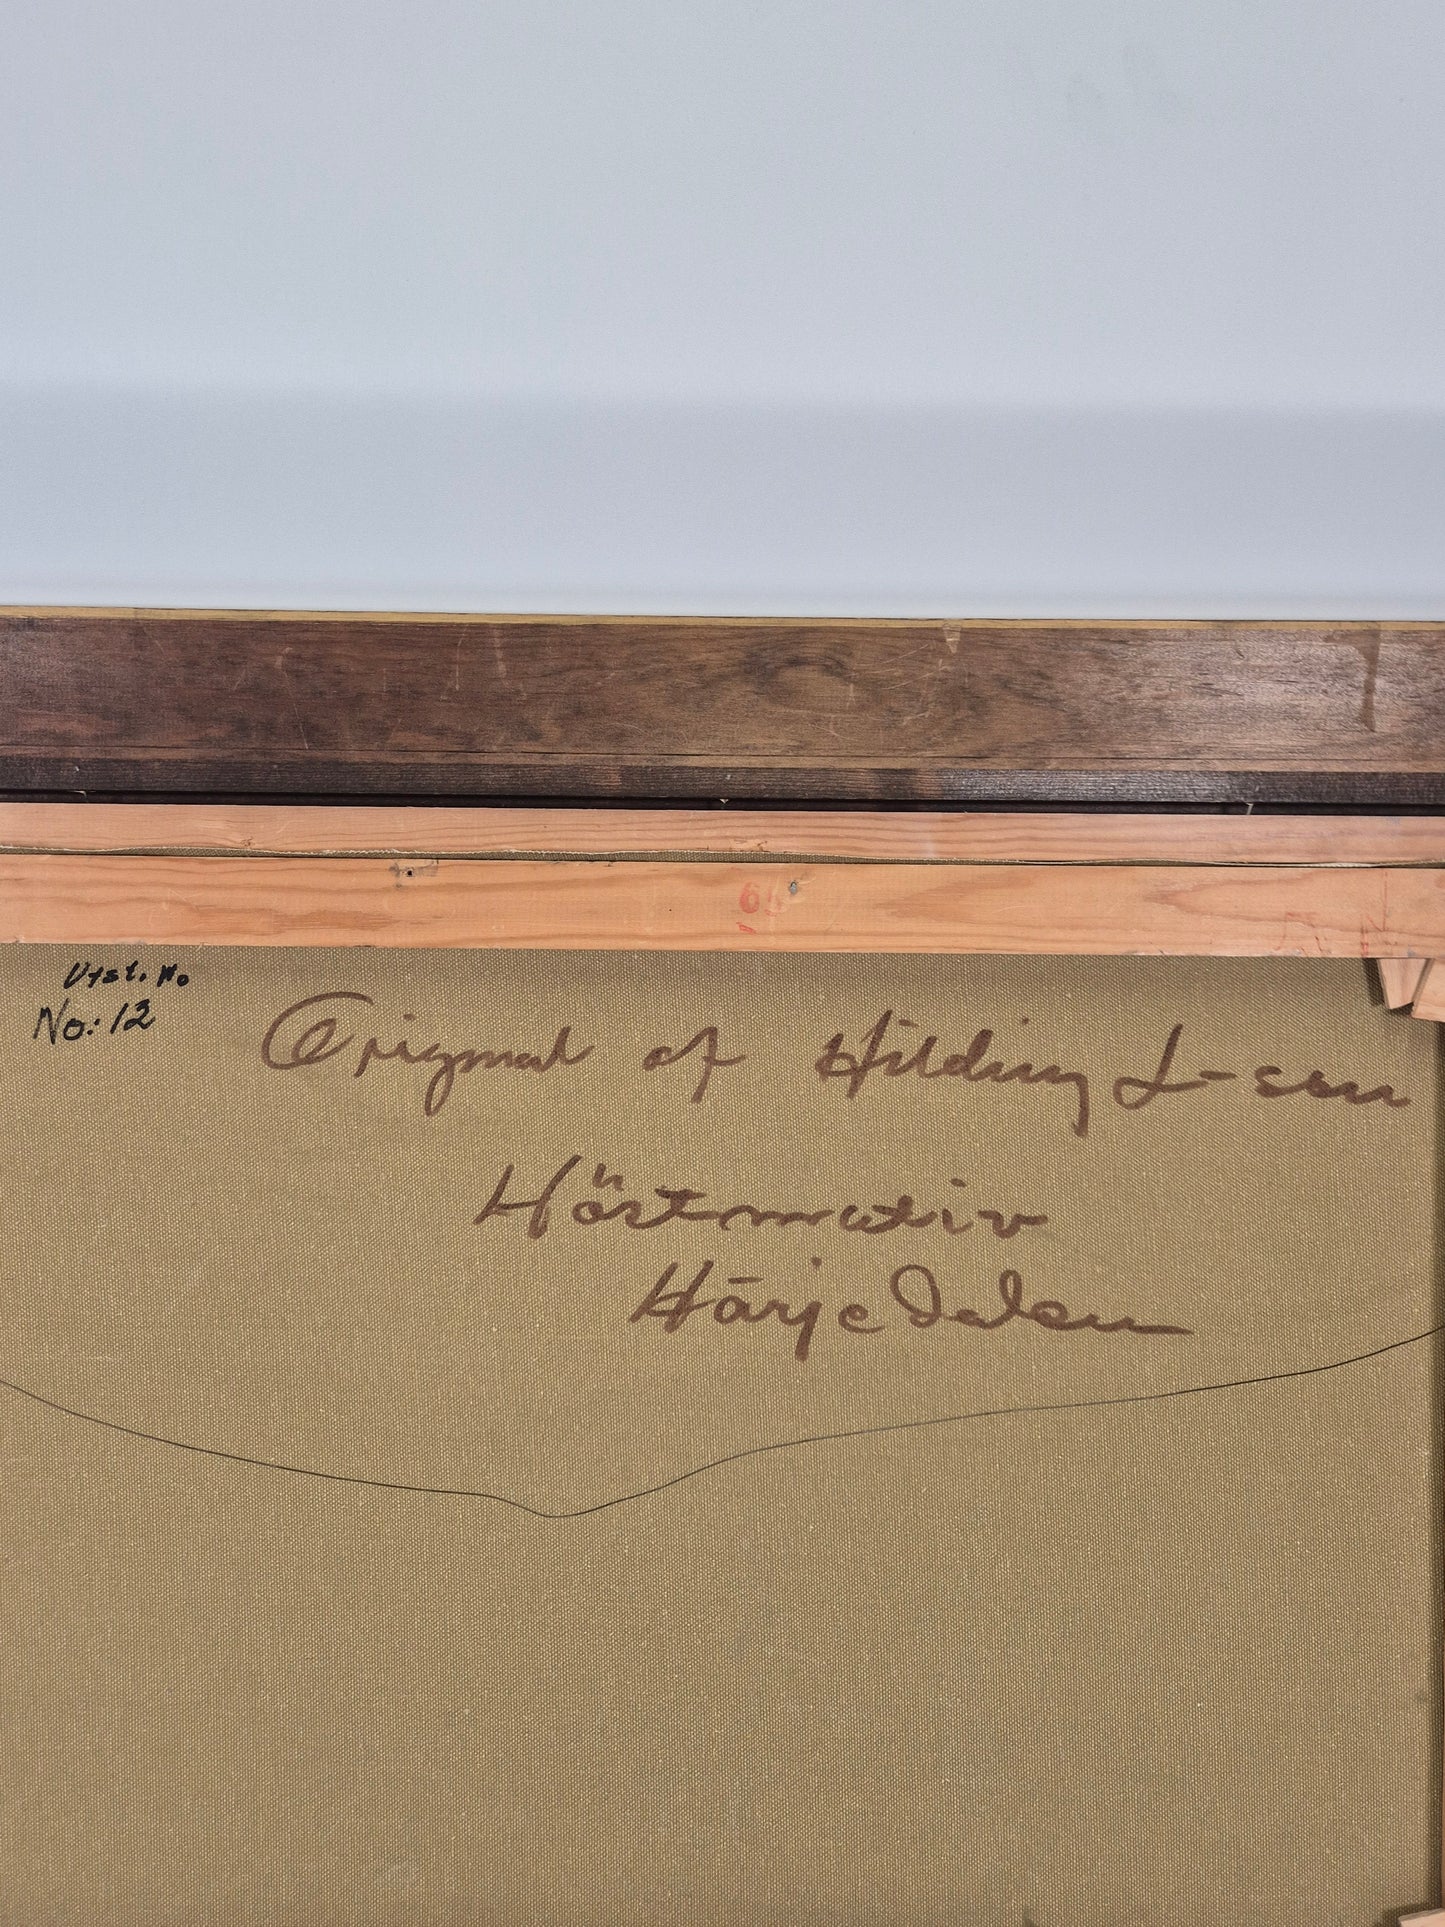 65
Utst. No
No: 12
Original af Hilding L-son
Höstmotiv
Härjedalen